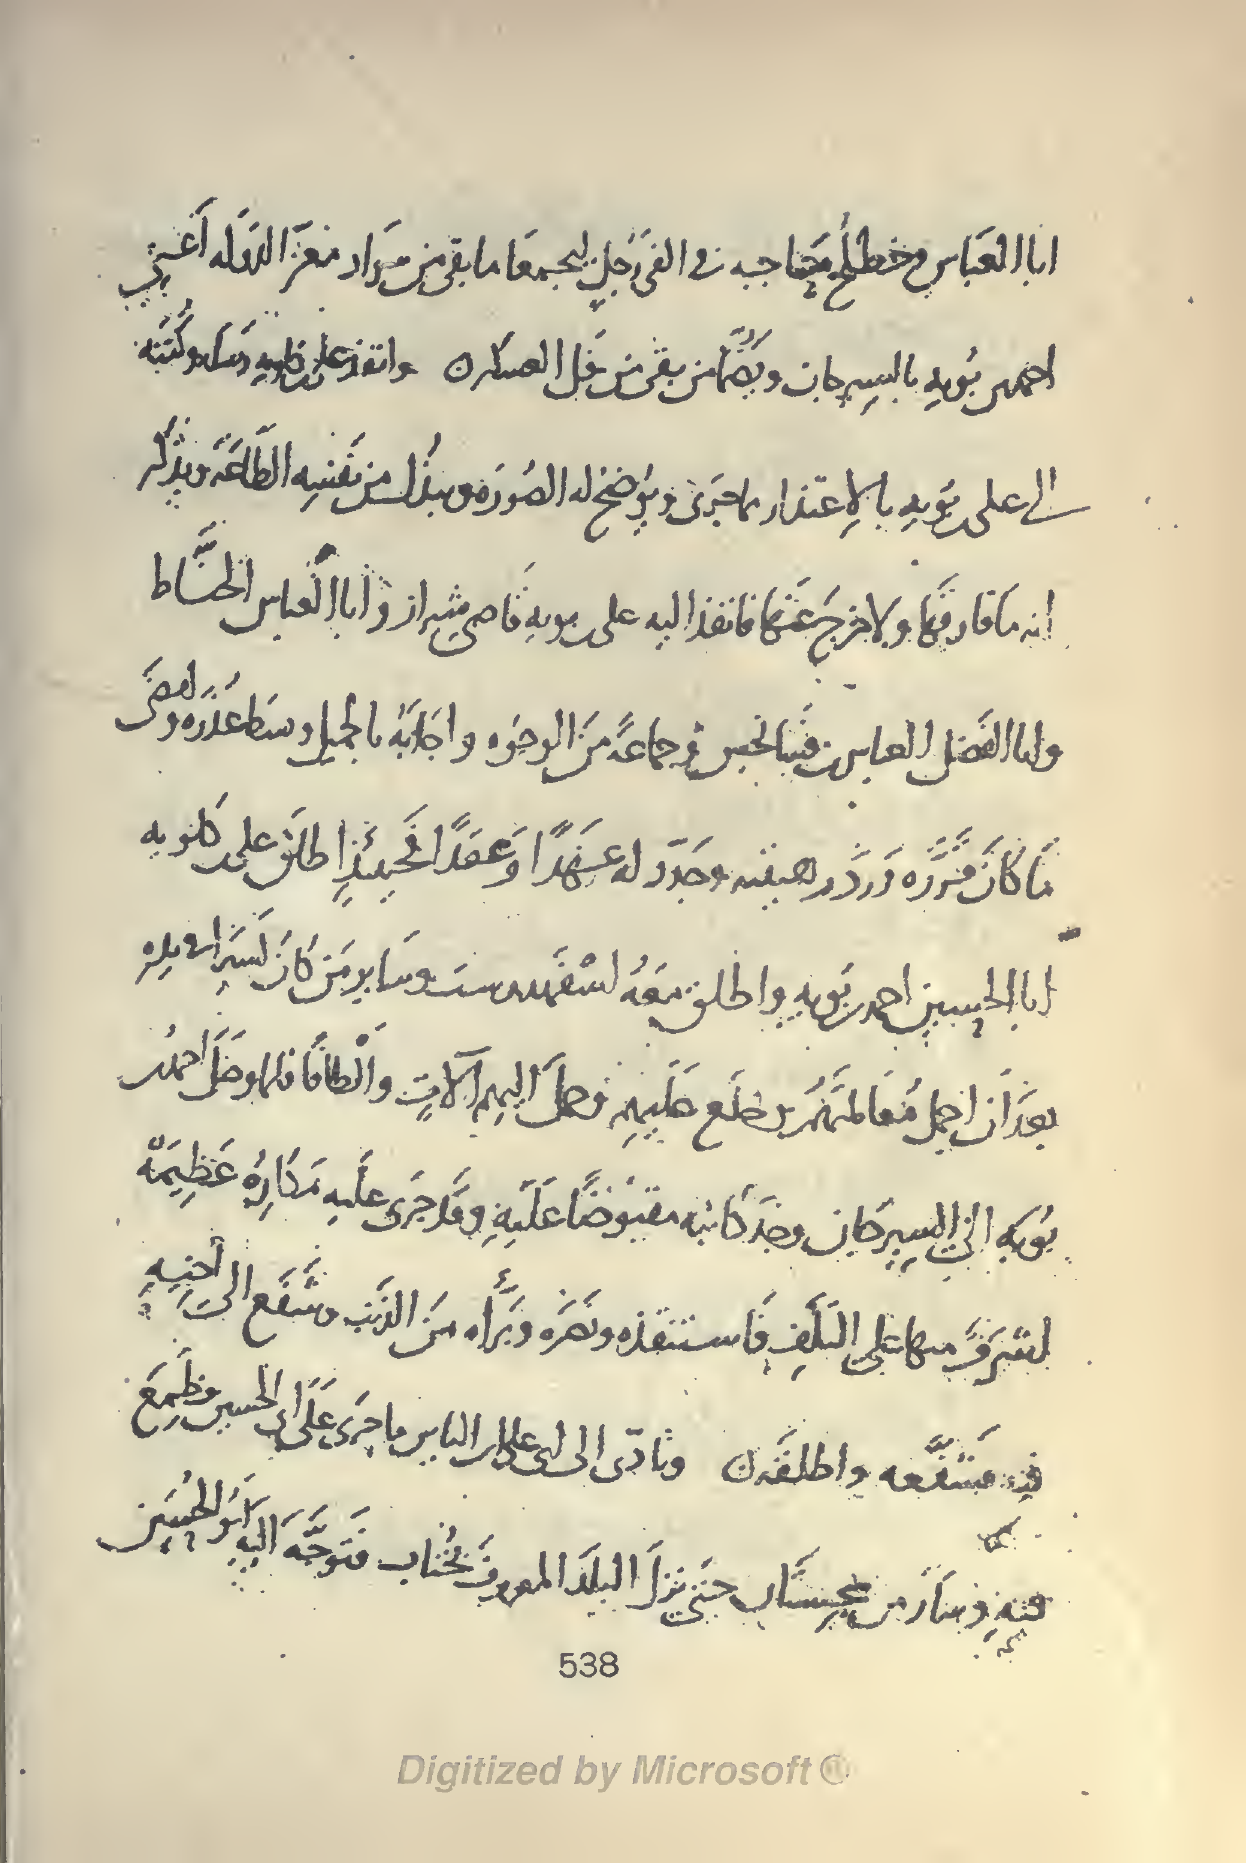 ابا العباس وخطلخ حاجبه فى الفى رجل ليجمعا ما بقى من سواد معز الدولة أعنى
احمد بن بويه بالسيرجان ويضما من بقى من فل العسكر ه وانفذ على بن كلويه رسله وكتبه
الى على بن بويه بالإعتذار مما جرى ويوضح له الصورة ويبذل من نفسه الطاعة ويذكر
انه ما فارقها ولا خرج عنها فانفذ اليه على بن بويه قاضى شيراز وابا العباس الحناط
وابا الفضل العباس بن فسانجس فى جماعة من الوجوه واجابه بالجميل وبسط عذره وامضى
ما كان قرره ورد رهينته وجدد له عهدا وعقدا فحينئذ اطلق على بن كلويه
ابا الحسين احمد بن بويه واطلق معه اسفهدوست وساير من كان اسر فى يده
بعد ان اجمل معاملتهم وخلع عليهم وحمل اليهم آلات والطافا فلما وصل احمد بن
بويه الى السيرجان وجد كاتبه مقبوضا عليه وقد جرى عليه مكاره عظيمة
اشرف منها على التلف فاستنقذه ونصره وبرأه من الذنب وشفع الى أخيه
فيه فشفعه واطلقه ه وتأدى الى ابن الياس ما جرى على ابى الحسين وطمع
فيه وسار من سجستان حتى نزل البلد المعروف بخناب فتوجه اليه ابو الحسين
538
Digitized by Microsoft ®